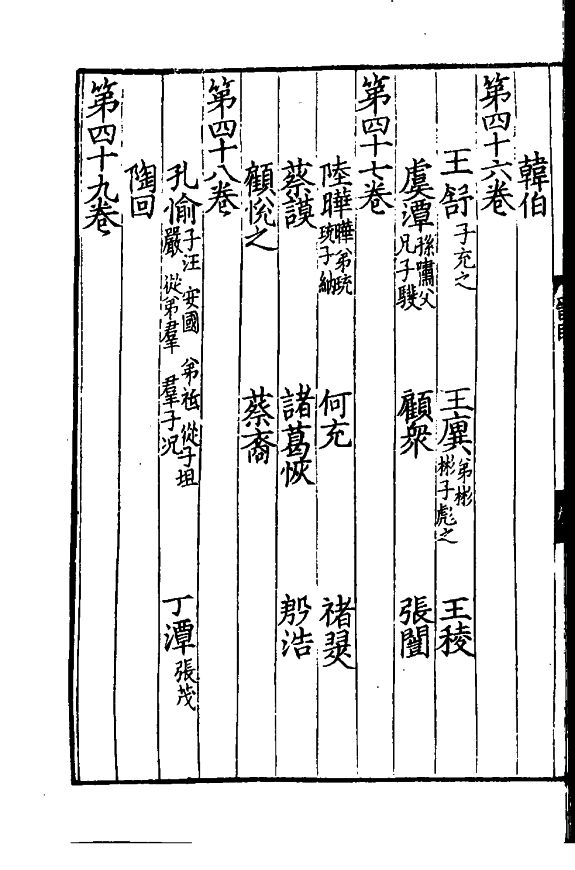 韓伯
第四十六卷
王舒 子充之 王廙 弟彬 彬子彪之 王稜
虞潭 孫嘯父 兄子 顧衆 張闓
第四十七卷
陸曄 曄弟玩 玩子納 何充 禇翜
蔡謨 諸葛恢 殷浩
顧悅之 蔡裔
第四十八卷
孔愉 子汪 安國 弟祗 從子坦 嚴 從弟羣 羣子况 丁潭 張茂
陶回
第四十九卷